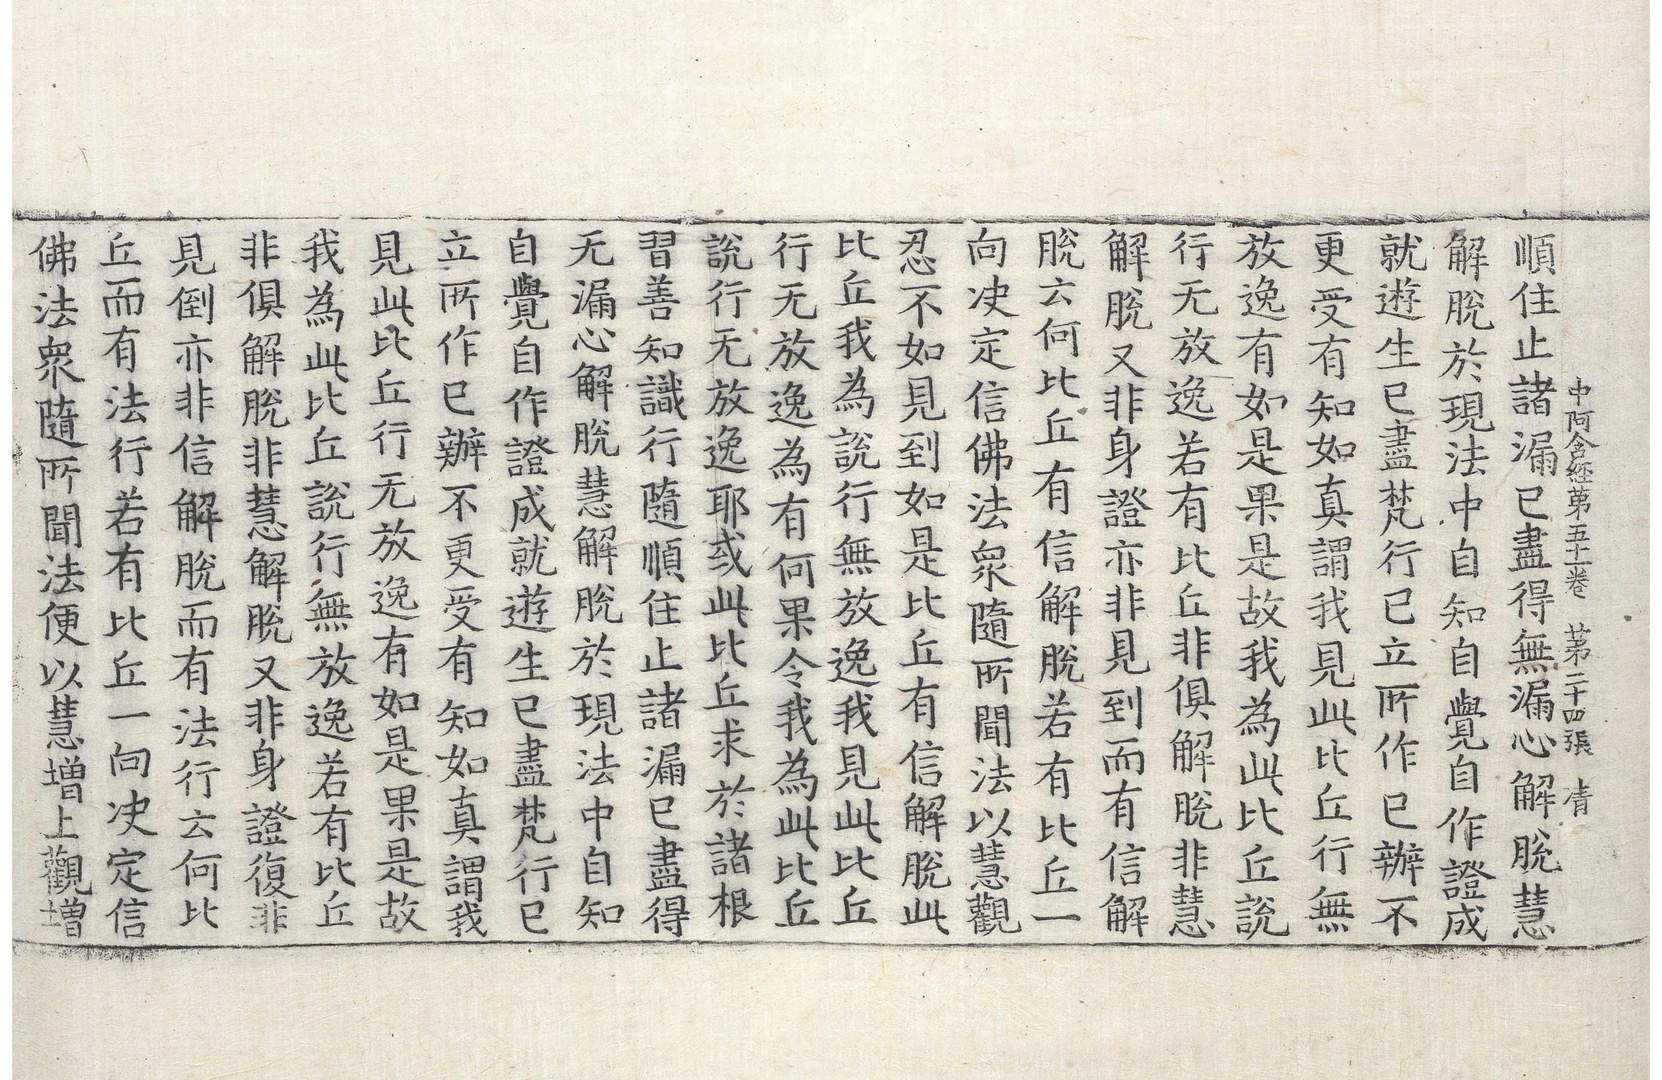 中阿含經第五十一卷　第二十四張　凊
順住止諸漏已盡得無漏心解脫慧
解脫於現法中自知自覺自作證成
就遊生已盡梵行已立所作已辦不
更受有知如真謂我見此比丘行無
放逸有如是果是故我為此比丘說
行无放逸若有比丘非俱解脫非慧
解脫又非身證亦非見到而有信解
脫云何比丘有信解脫若有比丘一
向決定信佛法衆隨所聞法以慧觀
忍不如見到如是比丘有信解脫此
比丘我為說行無放逸我見此比丘
行无放逸為有何果令我為此比丘
說行无放逸耶或此比丘求於諸根
習善知識行隨順住止諸漏已盡得
无漏心解脫慧解脫於現法中自知
自覺自作證成就遊生已盡梵行已
立所作已辦不更受有知如真謂我
見此比丘行无放逸有如是果是故
我為此比丘說行無放逸若有比丘
非俱解脫非慧解脫又非身證復非
見倒亦非信解脫而有法行云何比
丘而有法行若有比丘一向決定信
佛法衆隨所聞法便以慧增上觀增